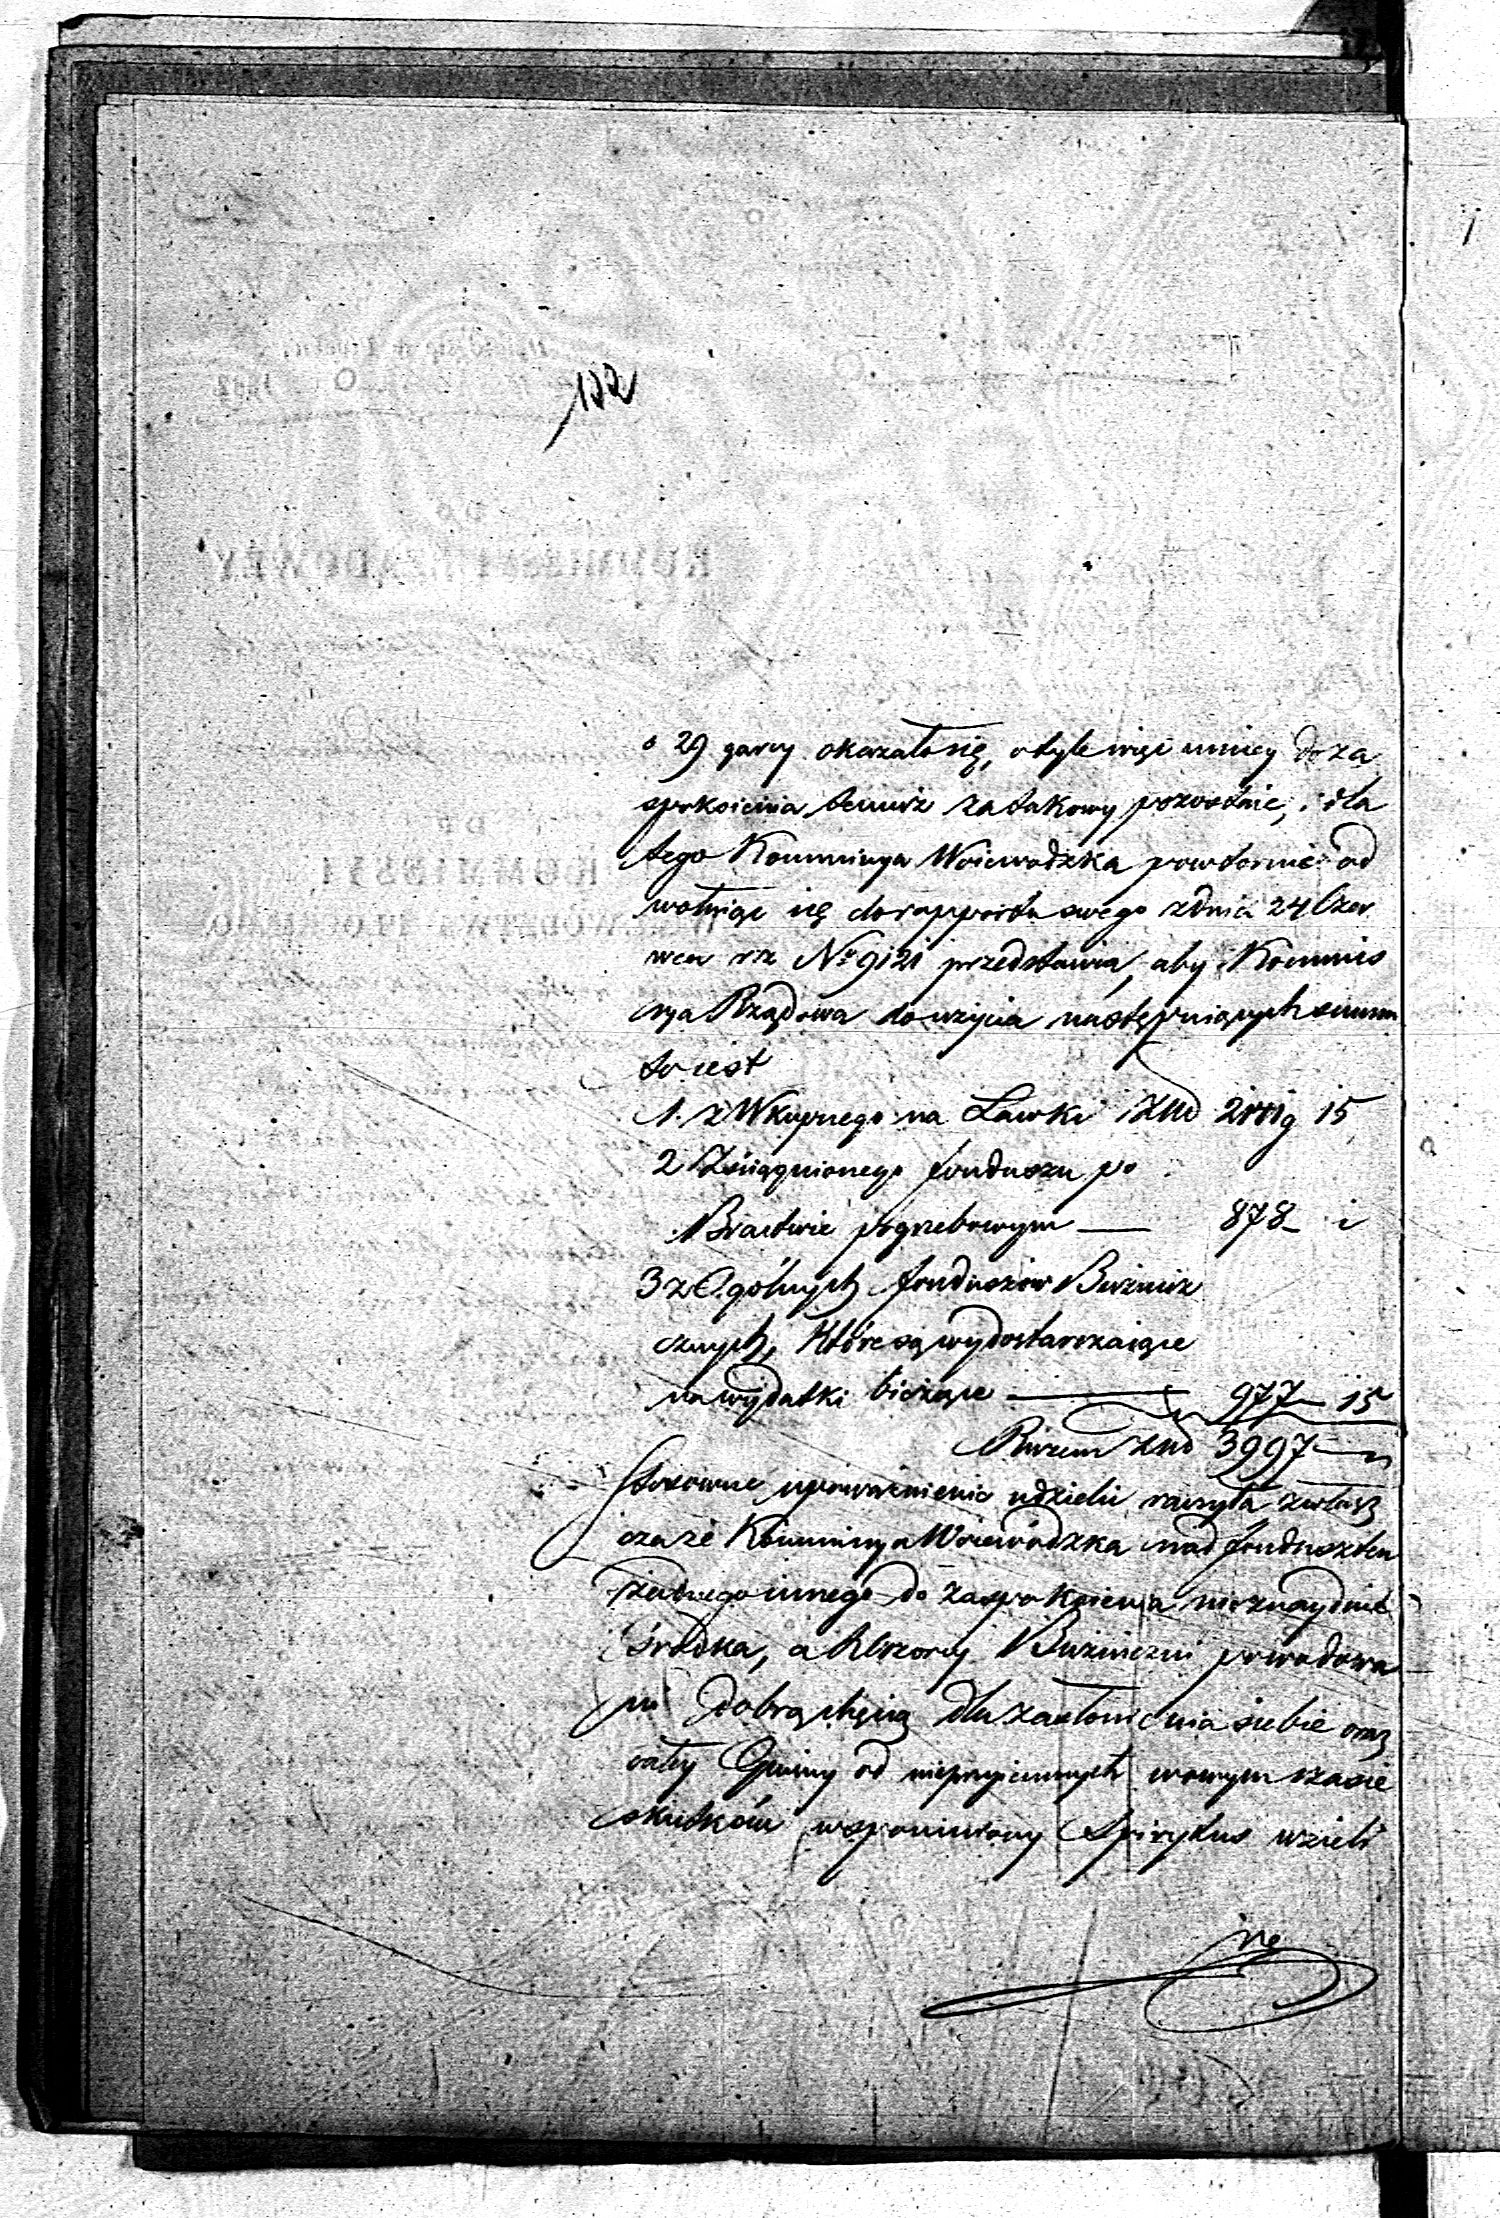 132
o 29 garcy okazało się, o tyle więc mniey do za
spokoienia temuż zatakowy pozostaie, i dla
tego Kommissya Woiewodzka powtornie od
wołuiąc się do rapportu swego z dnia 24 Czer
wca rb № 9121 przedstawia, aby Kommis
sya Rządowa do użycia następuiących summ
to iest
1. z Wkupnego na Ławki Złł 15
2 Zściągnionego funduszu po
Bractwie pogrzebowym — 878 – i
3 z Ogólnych funduszow Bużnicz
cznych, które są wydostarczaiące
na wydatki bieżące — 977 – 15
Razem Złł 3997 —
stosowne upoważnienie udzielić raczyła zwłasz
cza że Kommissya Woiewódzka nad fundusz ten
żadnego innego do zaspokoienia nieznayduie
środka, a Dozorcy Bużniczni powodowa
ni dobrą chęcią dla zasłonienia siebie oraz
całey Gminy od nieprzyiemnych w owym czasie
skutków wspomniony Spirytus wzieli